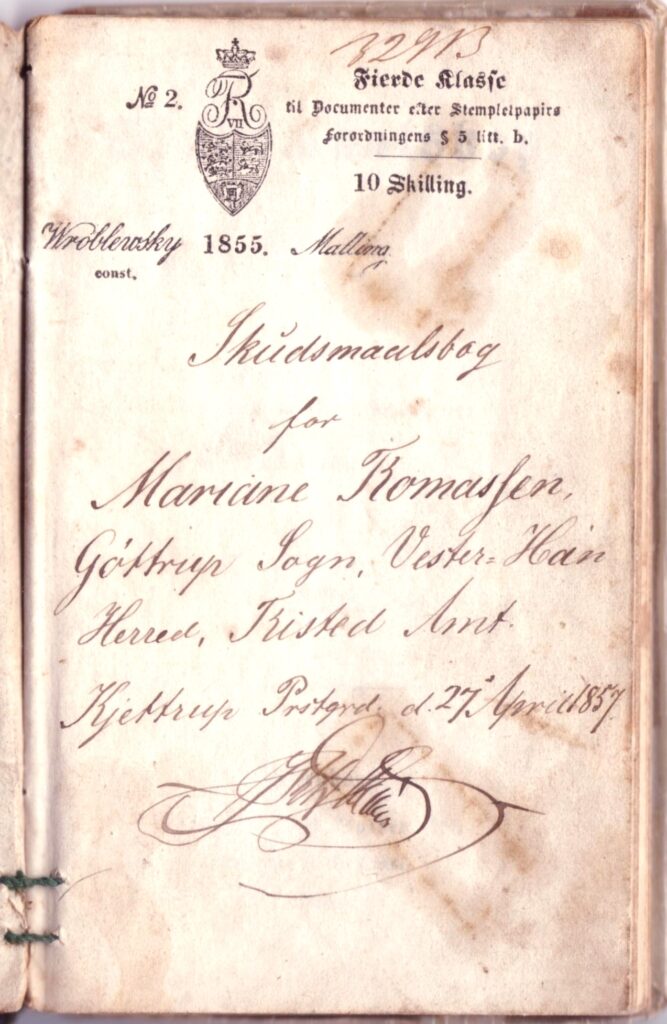 329B
No 2.
FR
VII
Fierde Klasse
til Documenter efter Stempletpapirs
Forordningens § 5 litt. b.
10 Skilling.
Wróblewsky 1855. Malling
const.
Skudsmaalsbog
for
Mariane Thomassen,
Göttrup Sogn, Vester-Han
Herred, Thisted Amt.
Kjettrup Prstgrd. d. 27 April 1857